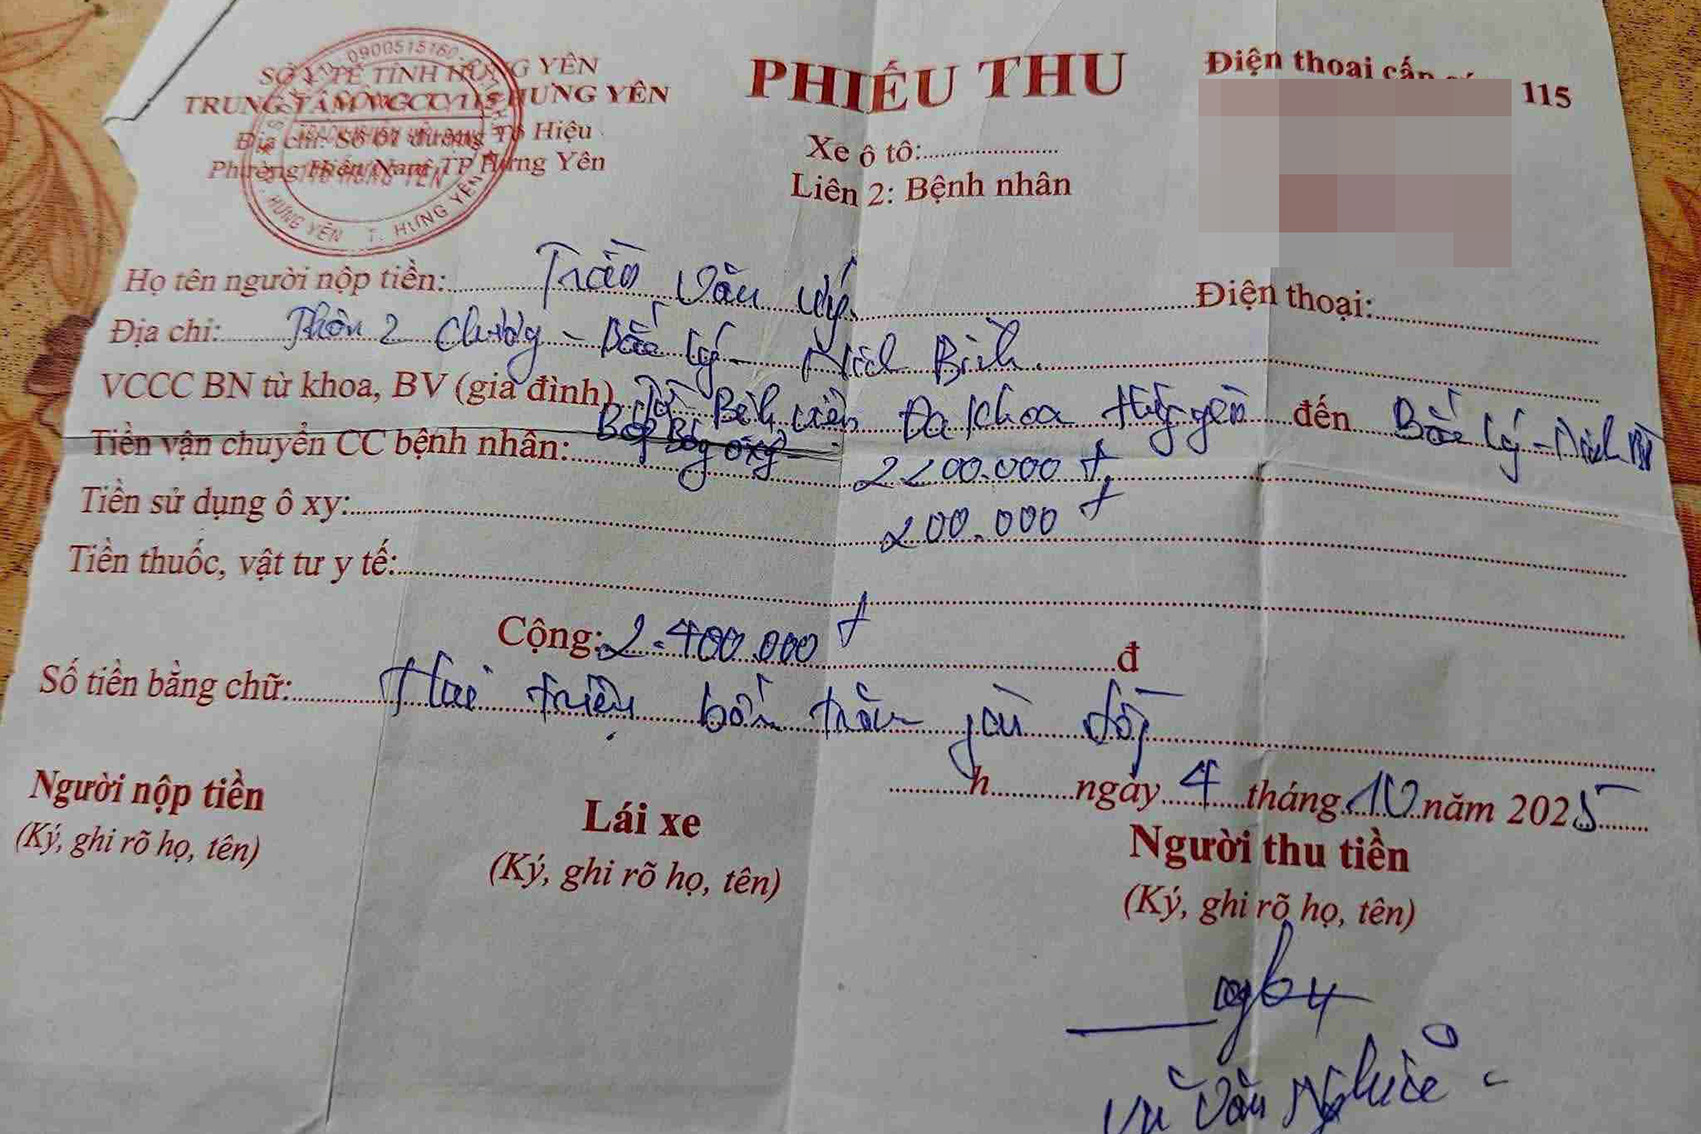 SỞ Y TẾ TỈNH HƯNG YÊN
TRUNG TÂM VCCC 115 HƯNG YÊN
Địa chỉ: Số 01 đường Tô Hiệu
Phường Hiến Nam TP Hưng Yên
0900515160
HƯNG YÊN T. HƯNG YÊN
PHIẾU THU
Xe ô tô:
Liên 2: Bệnh nhân
Điện thoại cấp 115
Họ tên người nộp tiền: Trần Văn Điện thoại:
Địa chỉ: Thôn 2 Chương - Bắc Lý - Ninh Bình.
VCCC BN từ khoa, BV (gia đình) Từ Bệnh viện Đa khoa Hưng yên đến Bắc Lý -
Tiền vận chuyển CC bệnh nhân: Bóp Bóng oxy 2200.000 đ
Tiền sử dụng ô xy: 200.000 đ
Tiền thuốc, vật tư y tế:
Cộng: 2.400.000 đ đ
Số tiền bằng chữ: Hai triệu bốn trăm đồng
h ngày 4 tháng 10 năm 2025
Người nộp tiền
(Ký, ghi rõ họ, tên)
Lái xe
(Ký, ghi rõ họ, tên)
Người thu tiền
(Ký, ghi rõ họ, tên)
Vũ Văn